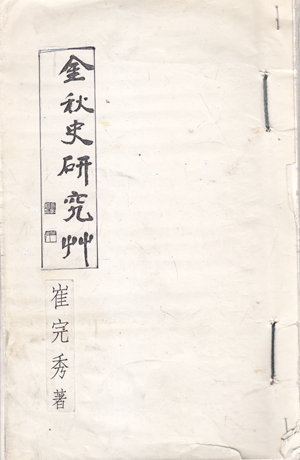 金秋史硏究艸
崔完秀著